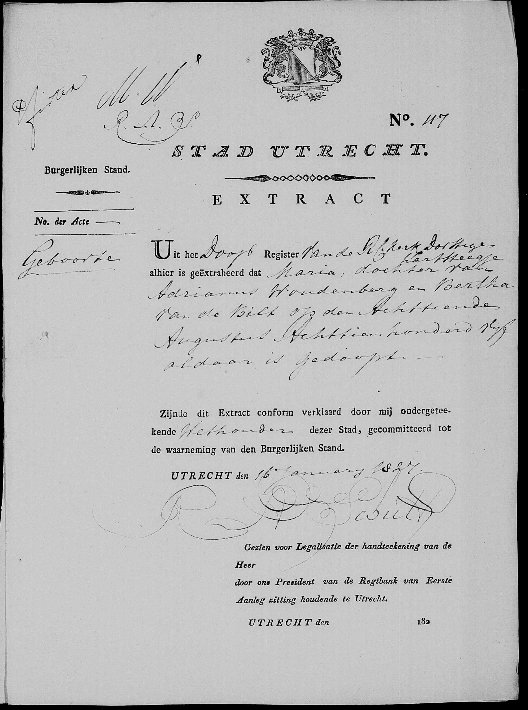 No. 117
STAD UTRECHT.
Burgerlijken Stand.
EXTRACT
No. der Acte
Geboorte
Uit het Doop Register van de
alhier is geëxtraheerd dat Maria, dochter van
Adrianus Woudenberg en Bertha
van de Bilt op den Achttiende
Augustus Achttien honderd vyf
aldaar is gedoopt
Zijnde dit Extract conform verklaard door mij ondergetee-
kende Wethouder dezer Stad, gecommitteerd tot
de waarneming van den Burgerlijken Stand.
UTRECHT den 16 January 1827
Gezien voor Legalisatie der handteekening van de
Heer
door ons President van de Regtbank van Eerste
Aanleg zitting houdende te Utrecht.
UTRECHT den 182